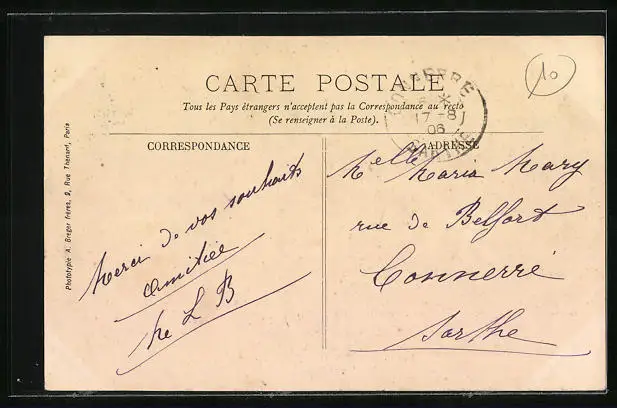 CARTE POSTALE
Tous les Pays étrangers n'acceptent pas la Correspondance au recto
(Se renseigner à la Poste).
CORRESPONDANCE
ADRESSE
10
17-8
06
Merci de vos souhaits
Amitiée
L B
Melle Maria Mary
rue de Belfort
Connerré
Sarthe
Phototypie A. Breger frères, 9, Rue Thénard, Paris